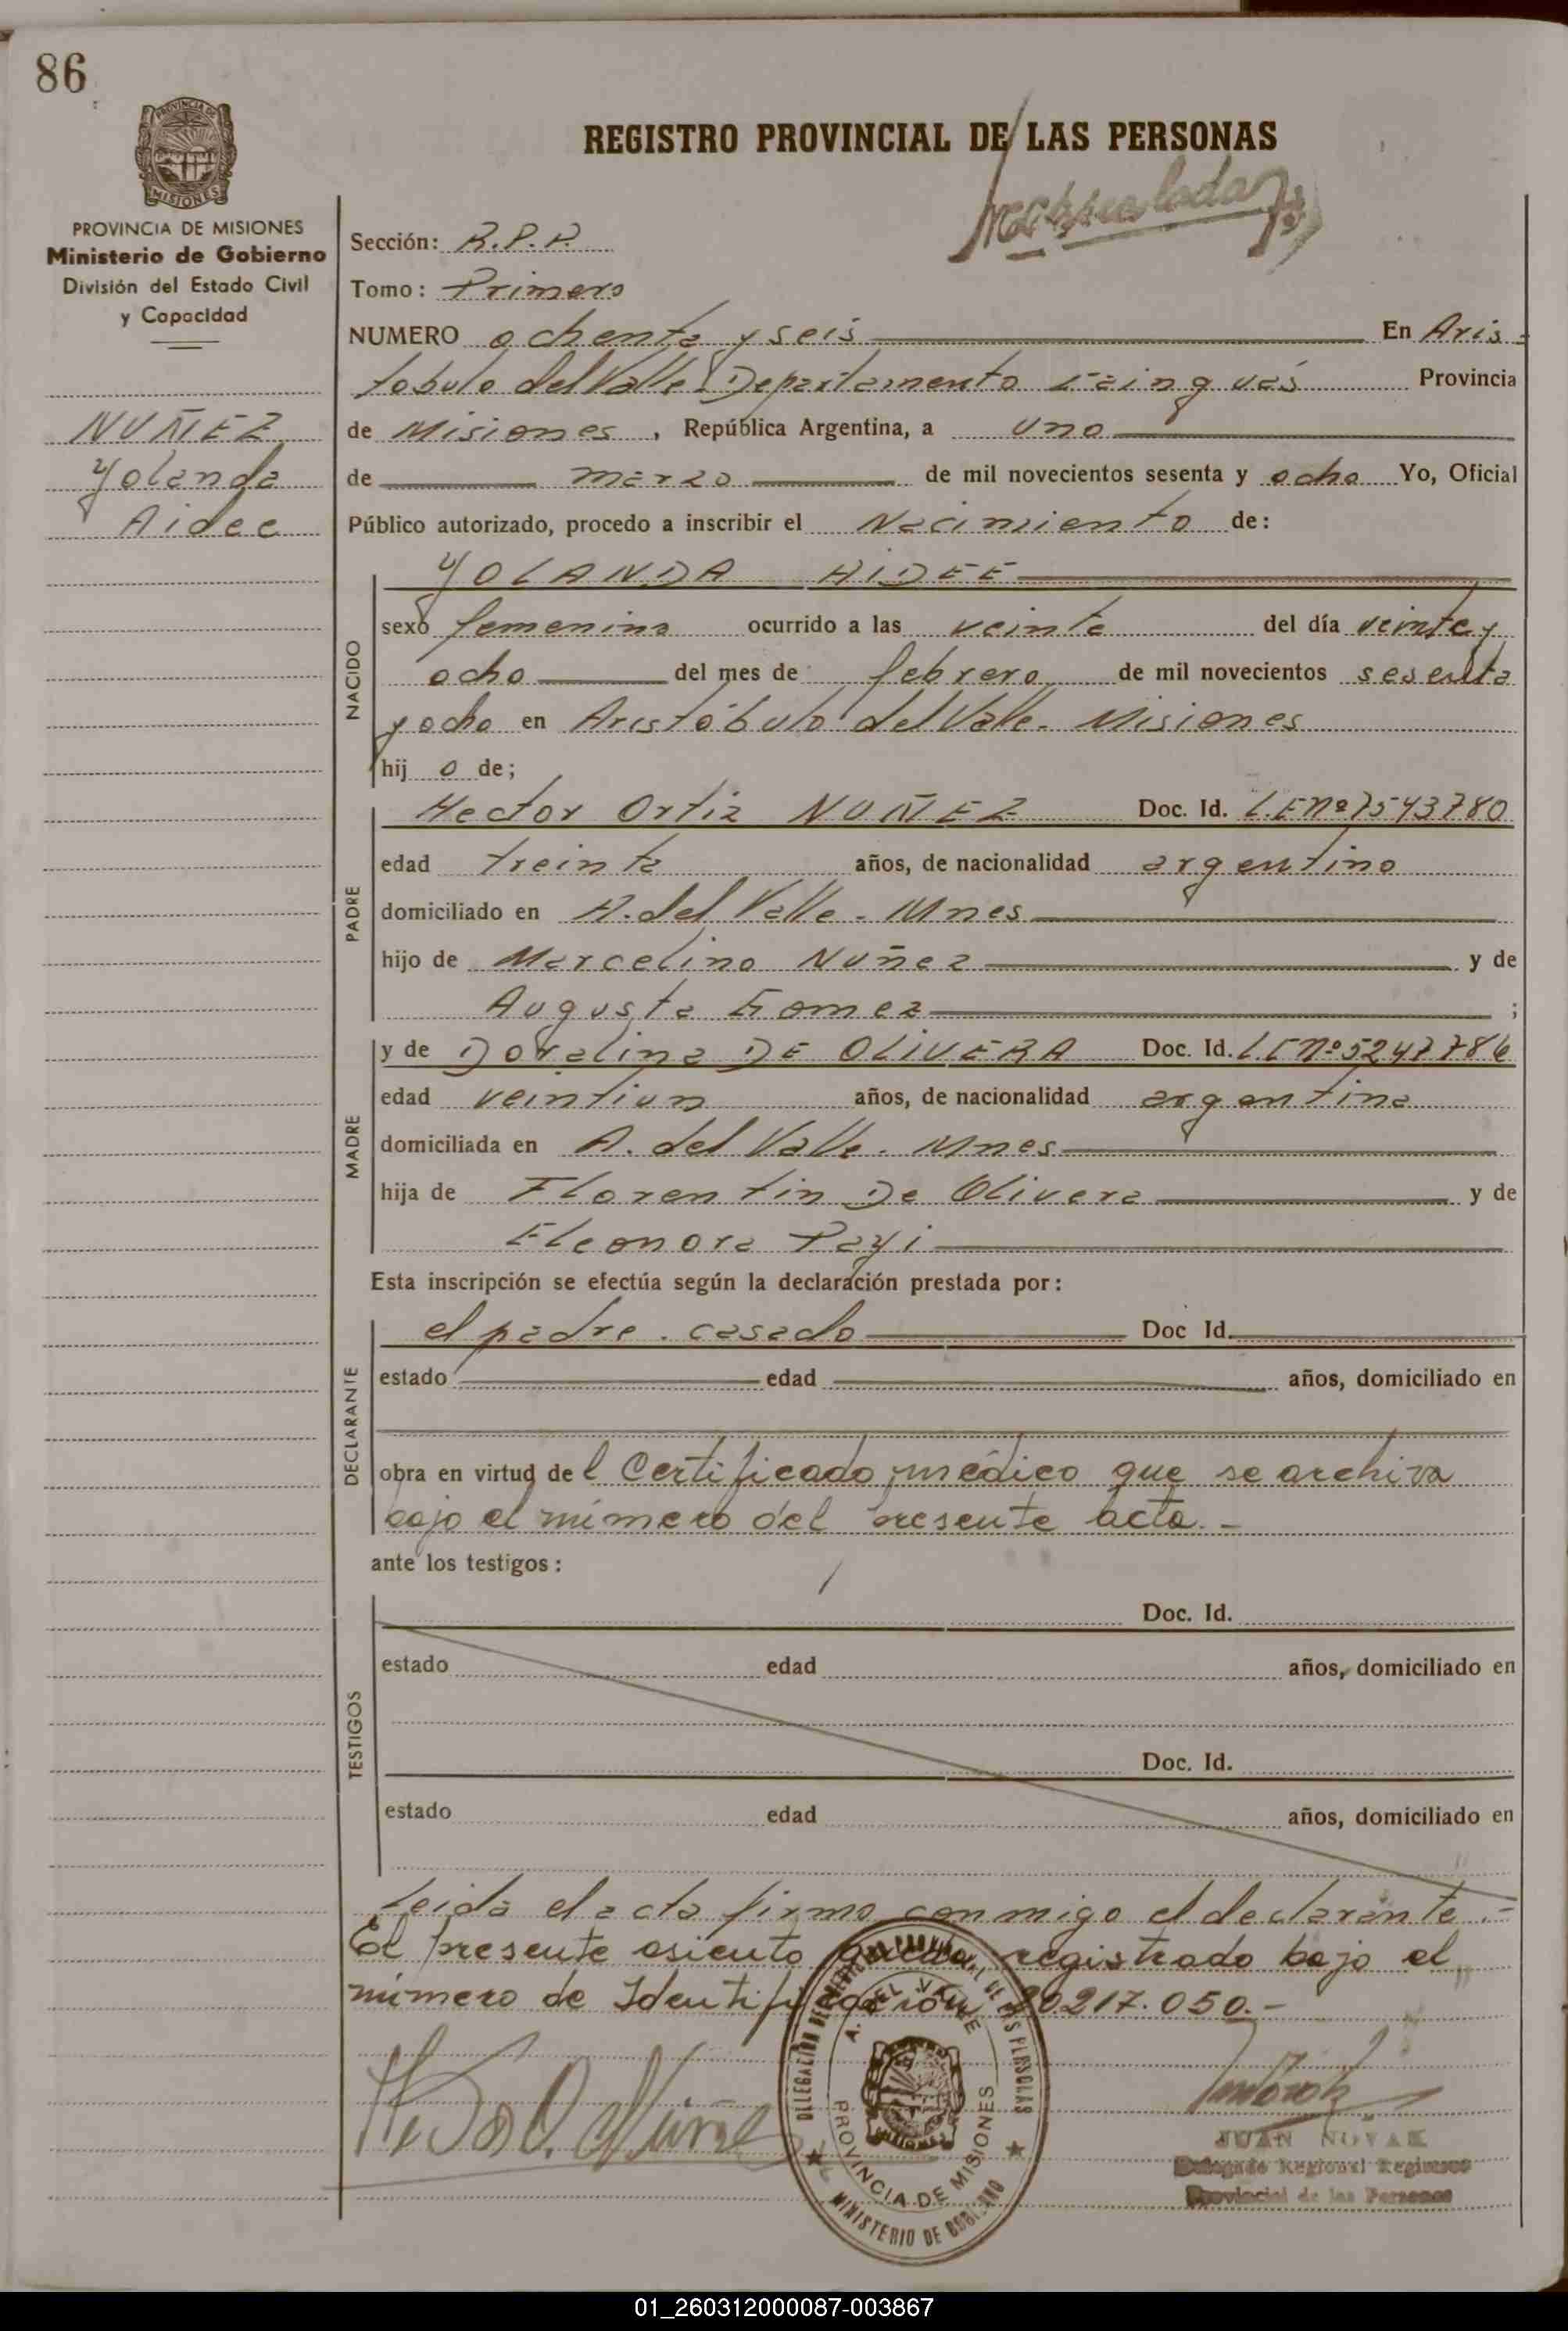 86
PROVINCIA DE MISIONES
Ministerio de Gobierno
División del Estado Civil
y Capacidad
NUÑEZ
Yolanda
Aidee
REGISTRO PROVINCIAL DE LAS PERSONAS
Sección: R.P.P.
Tomo: Primero
NUMERO ochenta y seis En Aris-
tobulo del Valle Departamento Cainguás Provincia
de Misiones, República Argentina, a uno
de marzo de mil novecientos sesenta y ocho Yo, Oficial
Público autorizado, procedo a inscribir el Nacimiento de:
NACIDO
YOLANDA AIDEE
sexo femenino ocurrido a las veinte del día veinte y
ocho del mes de febrero de mil novecientos sesenta
y ocho en Aristóbulo del Valle. Misiones
hij o de;
PADRE
Hector Ortiz NUÑEZ Doc. Id. L.E nº 7543780
edad treinta años, de nacionalidad argentino
domiciliado en A. del Valle. Mnes
hijo de Marcelino Nuñez y de
Augusta Gomez ;
MADRE
y de Doralina DE OLIVERA Doc. Id. L.C nº 5247786
edad veintiun años, de nacionalidad argentina
domiciliada en A. del Valle. Mnes
hija de Florentin De Olivera y de
Eleonora Payi
Esta inscripción se efectúa según la declaración prestada por:
DECLARANTE
el padre. casado Doc Id.
estado edad años, domiciliado en
obra en virtud del Certificado médico que se archiva
bajo el número del presente acta.-
ante los testigos:
TESTIGOS
Doc. Id.
estado edad años, domiciliado en
Doc. Id.
estado edad años, domiciliado en
Leida el acta firma conmigo el declarante.-
El presente asiento queda registrado bajo el
número de Identificación 20.217.050.-
DELEGACIÓN DEL REGISTRO PROVINCIAL DE LAS PERSONAS
A. DEL VALLE
PROVINCIA DE MISIONES
MINISTERIO DE GOBIERNO
JUAN NOVAK
Delegado Regional Registro
Provincial de las Personas
01_260312000087-003867